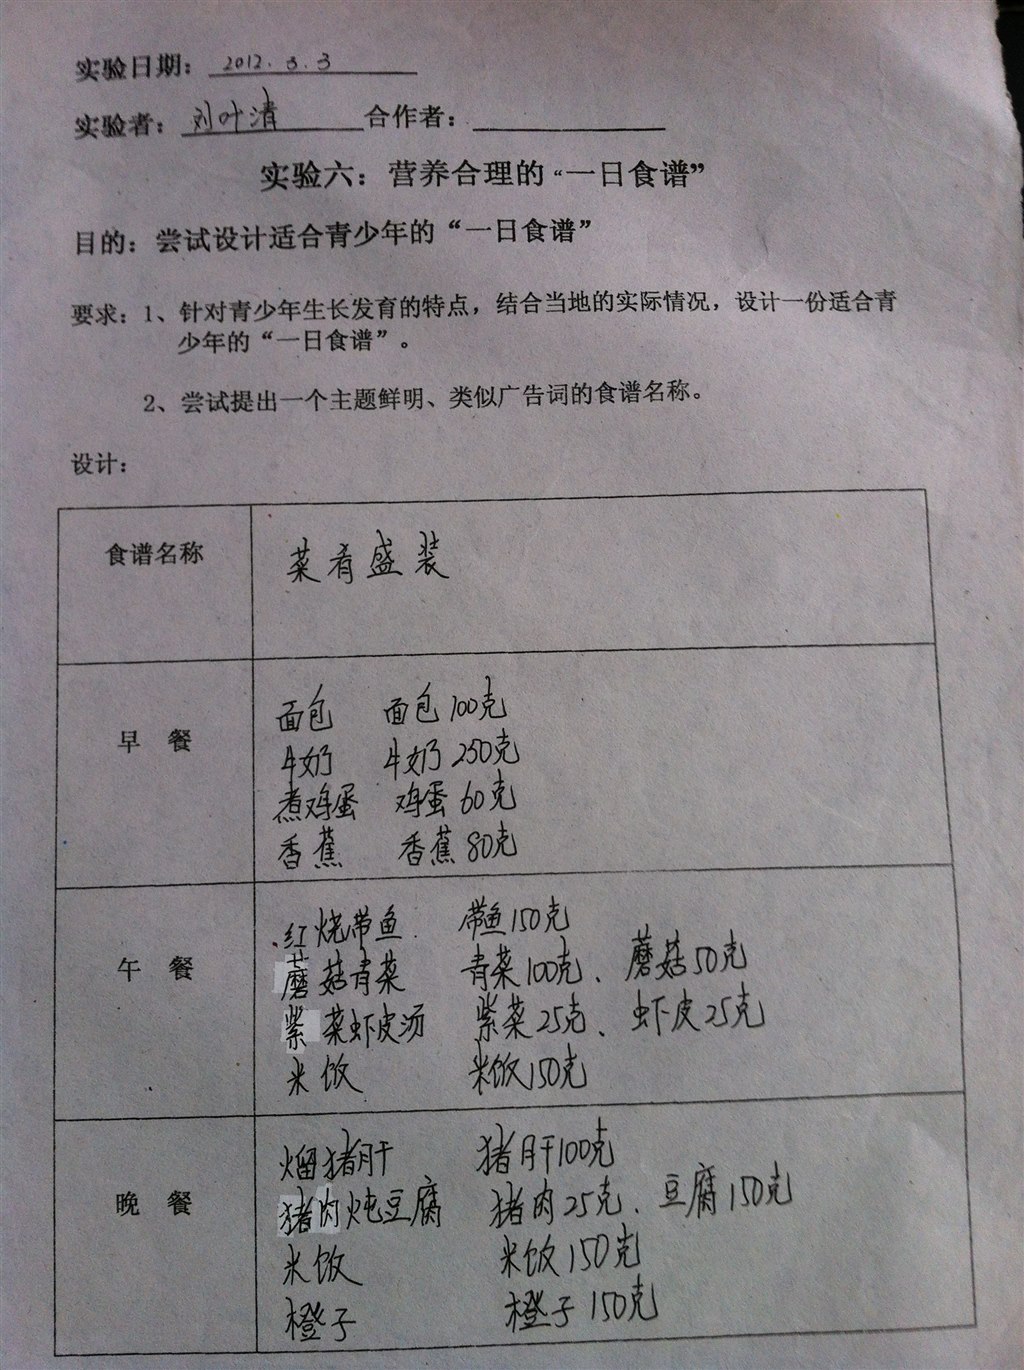 实验日期： 2012.3.3
实验者： 刘叶清 合作者：
实验六：营养合理的“一日食谱”
目的：尝试设计适合青少年的“一日食谱”
要求：1、针对青少年生长发育的特点，结合当地的实际情况，设计一份适合青
少年的“一日食谱”。
2、尝试提出一个主题鲜明、类似广告词的食谱名称。
设计：
食谱名称 菜肴盛装
早 餐
面包 面包100克
牛奶 牛奶250克
煮鸡蛋 鸡蛋60克
香蕉 香蕉80克
午 餐
红烧带鱼 带鱼150克
蘑菇青菜 青菜100克、蘑菇50克
紫菜虾皮汤 紫菜25克、虾皮25克
米饭 米饭150克
晚 餐
熘猪肝 猪肝100克
猪肉炖豆腐 猪肉25克、豆腐150克
米饭 米饭150克
橙子 橙子150克